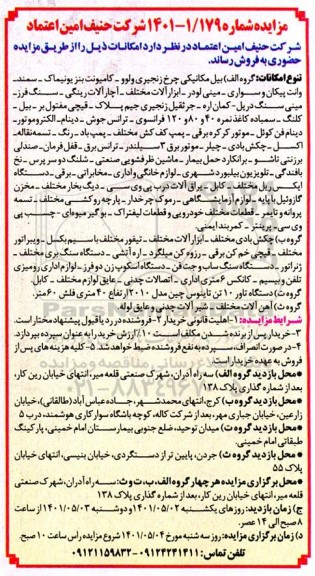 مزایده شماره ۱۴۰۱-۱/۱۷۹ شرکت حنیف امین اعتماد
شرکت حنیف امین اعتماد در نظر دارد امکانات ذیل را از طریق مزایده
حضوری به فروش رساند.
تنوع امکانات: گروه الف) بیل مکانیکی چرخ زنجیری ولوو - کامیونت بنز یونیماک - سمند-
وانت پیکان و سواری - مینی لودر - ابزارآلات مختلف - آچارآلات رینگی - سنگ فرز-
مینی سنگ دریل - کمان اره - جرثقیل زنجیری جیم پلاک - قیچی مفتول بر - بیل -
کلنگ - سمباده کاغذ نمره ۴۰ و ۸۰ و ۱۲۰ فرانسوی - ترانس جوش - دینام - الکتروموتور-
دینام فن کوئل - موتور کرکره برقی - پمپ کف کش مختلف - پمپ باد - رنگ - تسمه نقاله-
اکسل - چکش بادی - چیلر - موتور برق ۳ سیلندر - ترانس برق - قفل فرمان - صندلی
برزنتی تاشو - برانکارد حمل بیمار - ماشین ظرفشویی صنعتی - شلنگ دو سر پرس - نخ
بافندگی - تلویزیون بیلبورد شهری - لوازم خانگی و اداری - مخابراتی - برقی - دستگاه
ایکس ری مختلف - کابل - یراق آلات درب پی وی سی - دیگ بخار مختلف - مخزن
گازوئیل با پایه - لوازم آزمایشگاهی - رموک چرخدار - پارچه روکشی مختلف - تسمه
پروانه و تایمر - قطعات مختلف خودرویی و قطعات لیفتراک - بوگیر میوه ای - چسب پی
وی سی - پرینتر - کمربند ایمنی.
گروه ب) چکش بادی مختلف - ابزارآلات مختلف - تیفور مختلف با سیم بکسل - ویبراتور
مختلف - قیچی خم کن برقی - رزوه کن میلگرد - اره آتشی - دستگاه سنگ بری مختلف -
ژنراتور - دستگاه سنگ ساب و جت فن - دستگاه اسکوپ زن دو فرز - لوازم اداری رومیزی
تلفن و بیسیم - کانکس ۶ متری اداری - اتصالات چدنی - عایق لوله مختلف - کابل.
گروه ت) دستگاه تاور ۱۰ تن تاینوس چین مدل ۲۰۱۰ ارتفاع ۴۰ متری فلش ۶۰ متر.
گروه ث) آهن آلات مختلف - شیرآلات چدنی و عایق لوله
شرایط مزایده: ۱- اهلیت قانونی خریدار ۲- فروشنده در رد یا قبول پیشنهاد مختار است.
۳- خریدار پس از برنده شدن مکلف است ۱۰٪ ارزش خرید را به عنوان سپرده بپردازد.
۴- در صورت انصراف، سپرده به نفع فروشنده ضبط خواهد شد. ۵- کلیه هزینه های پس از
فروش به عهده خریدار است.
● محل بازدید گروه الف) سه راه آدران، شهرک صنعتی قلعه میر، انتهای خیابان رین کار،
بعد از شماره گذاری پلاک ۱۳۸
● محل بازدید گروه ب) کرج، انتهای محمدشهر، جاده عباس آباد (طالقانی)، خیابان
زارعین، خیابان جباری مهر، بعد از شرکت کاله، کوچه باشگاه سوارکاری هوشمند، درب ۵
● محل بازدید گروه ت) میدان توحید، ضلع جنوبی بیمارستان امام خمینی، پارکینگ
طبقاتی امام خمینی.
● محل بازدید گروه ث) جردن، پایین تر از دستگردی، خیابان بنیسی، انتهای خیابان
پلاک ۵۵
● محل برگزاری مزایده هر چهار گروه الف، ب، ت و ث: سه راه آدران، شهرک صنعتی
قلعه میر، انتهای خیابان رین کار، بعد از شماره گذاری پلاک ۱۳۸
ج) زمان بازدید: روزهای یکشنبه ۱۴۰۱/۰۵/۰۲ و دوشنبه ۱۴۰۱/۰۵/۰۳ از ساعت
۸ صبح الی ۱۴ عصر.
د) زمان برگزاری مزایده: روز سه شنبه مورخ ۱۴۰۱/۰۵/۰۴ شروع مزایده راس ساعت ۱۰ صبح.
تلفن تماس: ۰۹۱۲۴۲۴۱۴۱۱-۰۹۱۲۱۱۵۹۸۳۲